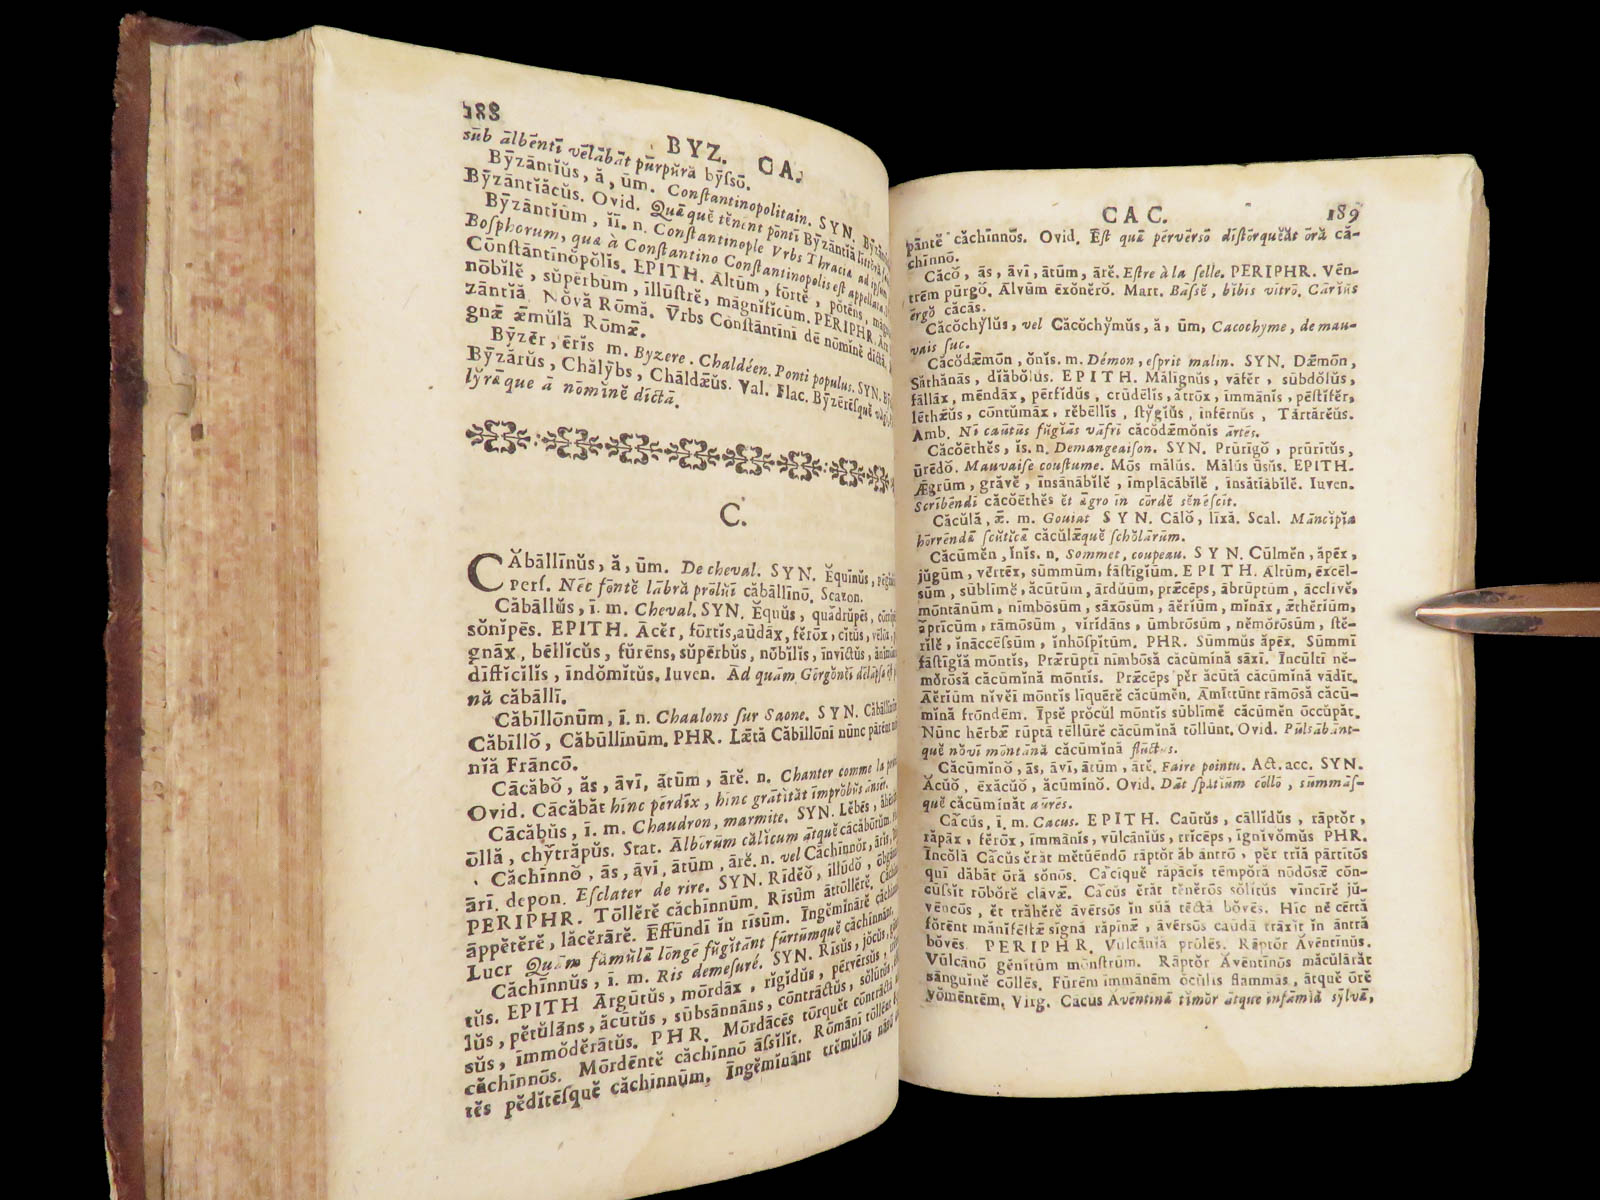 188
BYZ. CA.
sūb ālbēntī vēlābāt pūrpŭrā bȳssō.
Bȳzāntĭŭs, ă, ūm. Constantinopolitain. SYN.
Bȳzāntĭăcŭs. Ovid. Quæquĕ tĕnent pōnti Bȳzāntĭă
Bȳzāntĭūm, ĭī. n. Constantinople Vrbs Thracia ad
Boſphorum, quæ à Constantino Constantinopolis eſt
Cōnſtāntĭnŏpŏlĭs. EPITH. Altūm, fōrtĕ, pŏtēns,
nōbĭlĕ, sŭpērbūm, īllūſtrĕ, māgnĭfĭcūm. PERIPHR.
zāntĭă. Nŏvă Rōmă. V̄rbs Cōnſtāntīnī dē nōmĭnĕ dīctă.
gnæ æmŭlă Rōmæ.
Bȳzēr, ēris m. Byzere. Chaldéen. Ponti populus. SYN.
Bȳzărŭs, Chălȳbs, Chāldæŭs. Val. Flac. Bȳzērēſquĕ
lȳræque ā nōmĭnĕ dīctă.
C.
CĂbāllīnŭs, ă, ūm. De cheval. SYN. Ĕquīnŭs,
Perſ. Nēc fōntĕ lābră prōlŭī căbāllīnō. Scazon.
Căbāllŭs, ī. m. Cheval. SYN. Ĕquŭs, quădrŭpēs,
sŏnĭpēs. EPITH. Ācĕr, fōrtĭs, aūdāx, fĕrōx, cĭtŭs, vēlōx,
gnāx, bēllĭcŭs, fŭrēns, sŭpērbŭs, nōbĭlĭs, īnvīctŭs,
dīffĭcĭlĭs, īndŏmĭtŭs. Iuven. Ād quām Gōrgŏnĕī dēlāpſa
nă căbāllī.
Căbīllōnūm, ī. n. Chaalons ſur Saone. SYN.
Căbīllŏ, Căbūllīnūm. PHR. Lætă Căbīllōnī nūnc
nĭă Frāncō.
Căcăbŏ, ăs, āvī, ātūm, ārĕ. n. Chanter comme la
Ovid. Căcăbăt hīnc pērdīx, hīnc grātĭtăt īmprŏbŭs ānsĕr.
Căcăbŭs, ī. m. Chaudron, marmite. SYN. Lĕbēs,
ōllă, chȳtrăpŭs. Stat. Ālbōrūm călĭcum ātquĕ căcăbōrūm.
Căchīnnŏ, ās, āvī, ātūm, ārĕ. n. vel Căchīnnŏr, ārĭs,
ārī. depon. Eſclater de rire. SYN. Rīdĕŏ, īllūdŏ,
PERIPHR. Tōllĕrĕ căchīnnūm. Rīsūm āttōllĕrĕ.
āppĕtĕrĕ, lăcĕrārĕ. Ēffūndī īn rīsūm. Īngĕmĭnārĕ
Lucr Quām fămŭlæ lōngē fŭgĭtānt fūrtīmquĕ căchīnnānt.
Căchīnnŭs, ī. m. Ris demeſuré. SYN. Rīsŭs, jŏcŭs,
tŭs. EPITH Ārgūtŭs, mōrdāx, rĭgĭdŭs, pērvērsŭs,
lŭs, pĕtŭlāns, ăcūtŭs, sūbsānnāns, cōntrāctŭs, sŏlūtŭs,
sŭs, īmmŏdĕrātŭs. PHR. Mōrdācēs tōrquĕt
căchīnnōs. Mōrdēntĕ căchīnnō āſsĭlĭt. Rōmānī tōllēnt
tēs pĕdĭtēſquĕ căchīnnūm. Īngĕmĭnānt trĕmŭlōs
CAC.
189
pāntĕ căchīnnōs. Ovid. Ēſt quæ pērvērsō dīſtōrquĕăt ōră că-
chīnnō.
Căcŏ, ās, āvī, ātūm, ārĕ. Eſtre à la ſelle. PERIPHR. Vēn-
trēm pūrgŏ. Ālvūm ēxŏnĕrŏ. Mart. Bāſsĕ, bĭbĭs vĭtrō. Cārĭŭs
ērgŏ căcās.
Căcŏchȳlŭs, vel Căcŏchȳmŭs, ă, ūm, Cacochyme, de mau-
vais ſuc.
Căcŏdæmōn, ŏnĭs. m. Démon, eſprit malin. SYN. Dæmōn,
Sāthănās, dĭăbŏlŭs. EPITH. Mălīgnŭs, văfĕr, sūbdŏlŭs,
fāllāx, mēndāx, pērfĭdŭs, crūdēlĭs, ătrōx, īmmānĭs, pēſtĭfĕr,
lēthæŭs, cōntŭmāx, rĕbēllĭs, ſtȳgĭŭs, īnfērnŭs, Tārtărĕŭs.
Amb. Nī caūtŭs fŭgĭās văfrī căcŏdæmŏnĭs ārtēs.
Căcŏēthĕs, ĭs. n. Demangeaiſon. SYN. Prūrīgŏ, prūrītŭs,
ūrēdŏ. Mauvaiſe couſtume. Mōs mălŭs. Mălŭs ūsŭs. EPITH.
Ægrūm, grăvĕ, īnsānābĭlĕ, īmplācābĭlĕ, īnsătĭābĭlĕ. Iuven.
Scrībēndī căcŏēthĕs ĕt ægro īn cōrdĕ sĕnēſcĭt.
Căcŭlă, æ. m. Goujat SYN. Cālŏ, līxă. Scal. Māncĭpĭa
hōrrēndă ſcŭtĭcă căcŭlæquĕ ſchŏlārūm.
Căcūmĕn, ĭnĭs. n. Sommet, coupeau. SYN. Cūlmĕn, ăpēx,
jŭgūm, vērtēx, sūmmūm, fāſtīgĭūm. EPITH. Āltūm, ēxcēl-
sūm, sŭblīmĕ, ăcūtūm, ārdŭūm, præcēps, ăbrūptūm, ācclīvĕ,
mōntānūm, nīmbōsūm, sāxōsūm, āĕrĭūm, mĭnāx, æthĕrĭūm,
ăprīcūm, rāmōsūm, vĭrĭdāns, ūmbrōsūm, nĕmŏrōsūm, ſtĕ-
rĭlĕ, ĭnāccēſsūm, ĭnhōſpĭtūm. PHR. Sūmmŭs ăpēx. Sūmmī
fāſtīgĭă mōntĭs, Prærūptī nīmbōsă căcūmĭnă sāxī. Īncūltī nĕ-
mŏrōsă căcūmĭnă mōntĭs. Præcēps pĕr ăcūtă căcūmĭnă vādĭt.
Āĕrĭūm nĭvĕī mōntĭs līquērĕ căcūmĕn. Āmīttūnt rāmōsă căcū-
mĭnă frōndēm. Īpsĕ prŏcŭl mōntĭs sŭblīmĕ căcūmĕn ōccŭpăt.
Nūnc hērbæ rūptā tēllūrĕ căcūmĭnă tōllūnt. Ovid. Pūlsābānt-
quĕ nŏvī mōntānă căcūmĭnă flūctŭs.
Căcūmĭnŏ, ās, āvī, ātūm, ārĕ. Faire pointu. Act. acc. SYN.
Ăcŭŏ, ēxăcŭŏ, ăcūmĭnŏ. Ovid. Dāt ſpătĭūm cōllō, sūmmāſ-
quĕ căcūmĭnăt aūrēs.
Cācŭs, ī. m. Cacus. EPITH. Caūtŭs, cāllĭdŭs, rāptŏr,
răpāx, fĕrōx, īmmānĭs, vūlcānĭŭs, trĭcēps, īgnĭvŏmŭs PHR.
Īncŏlă Cācŭs ĕrăt mĕtŭēndō rāptŏr ăb āntrō, pĕr trĭă pārtītōs
quī dābăt ōră sŏnōs. Cācīquĕ răpācĭs tēmpŏră nōdōsæ cōn-
cūſsĭt rōbŏrĕ clāvæ. Cācŭs ĕrăt tĕnĕrōs sŏlĭtŭs vīncīrĕ jŭ-
vēncōs, ĕt trăhĕrĕ āvērsōs īn sŭă tēctă bŏvēs. Hīc nē cērtă
fŏrēnt mănĭfēſtæ sīgnă răpīnæ, āvērsōs caūdā trāxĭt ĭn āntră
bŏvēs. PERIPHR. Vūlcānĭă prōlēs. Rāptŏr Ăvēntīnŭs.
Vūlcānō gĕnĭtūm mōnſtrum. Rāptŏr Ăvēntīnōs măcŭlārăt
sānguĭnĕ cōllēs. Fūrēm īmmānēm ŏcŭlīs flāmmās, ātquĕ ōrĕ
vŏmēntēm, Virg. Cācus Ăvēntīnæ tĭmŏr ātque īnfāmĭă sȳlvæ,